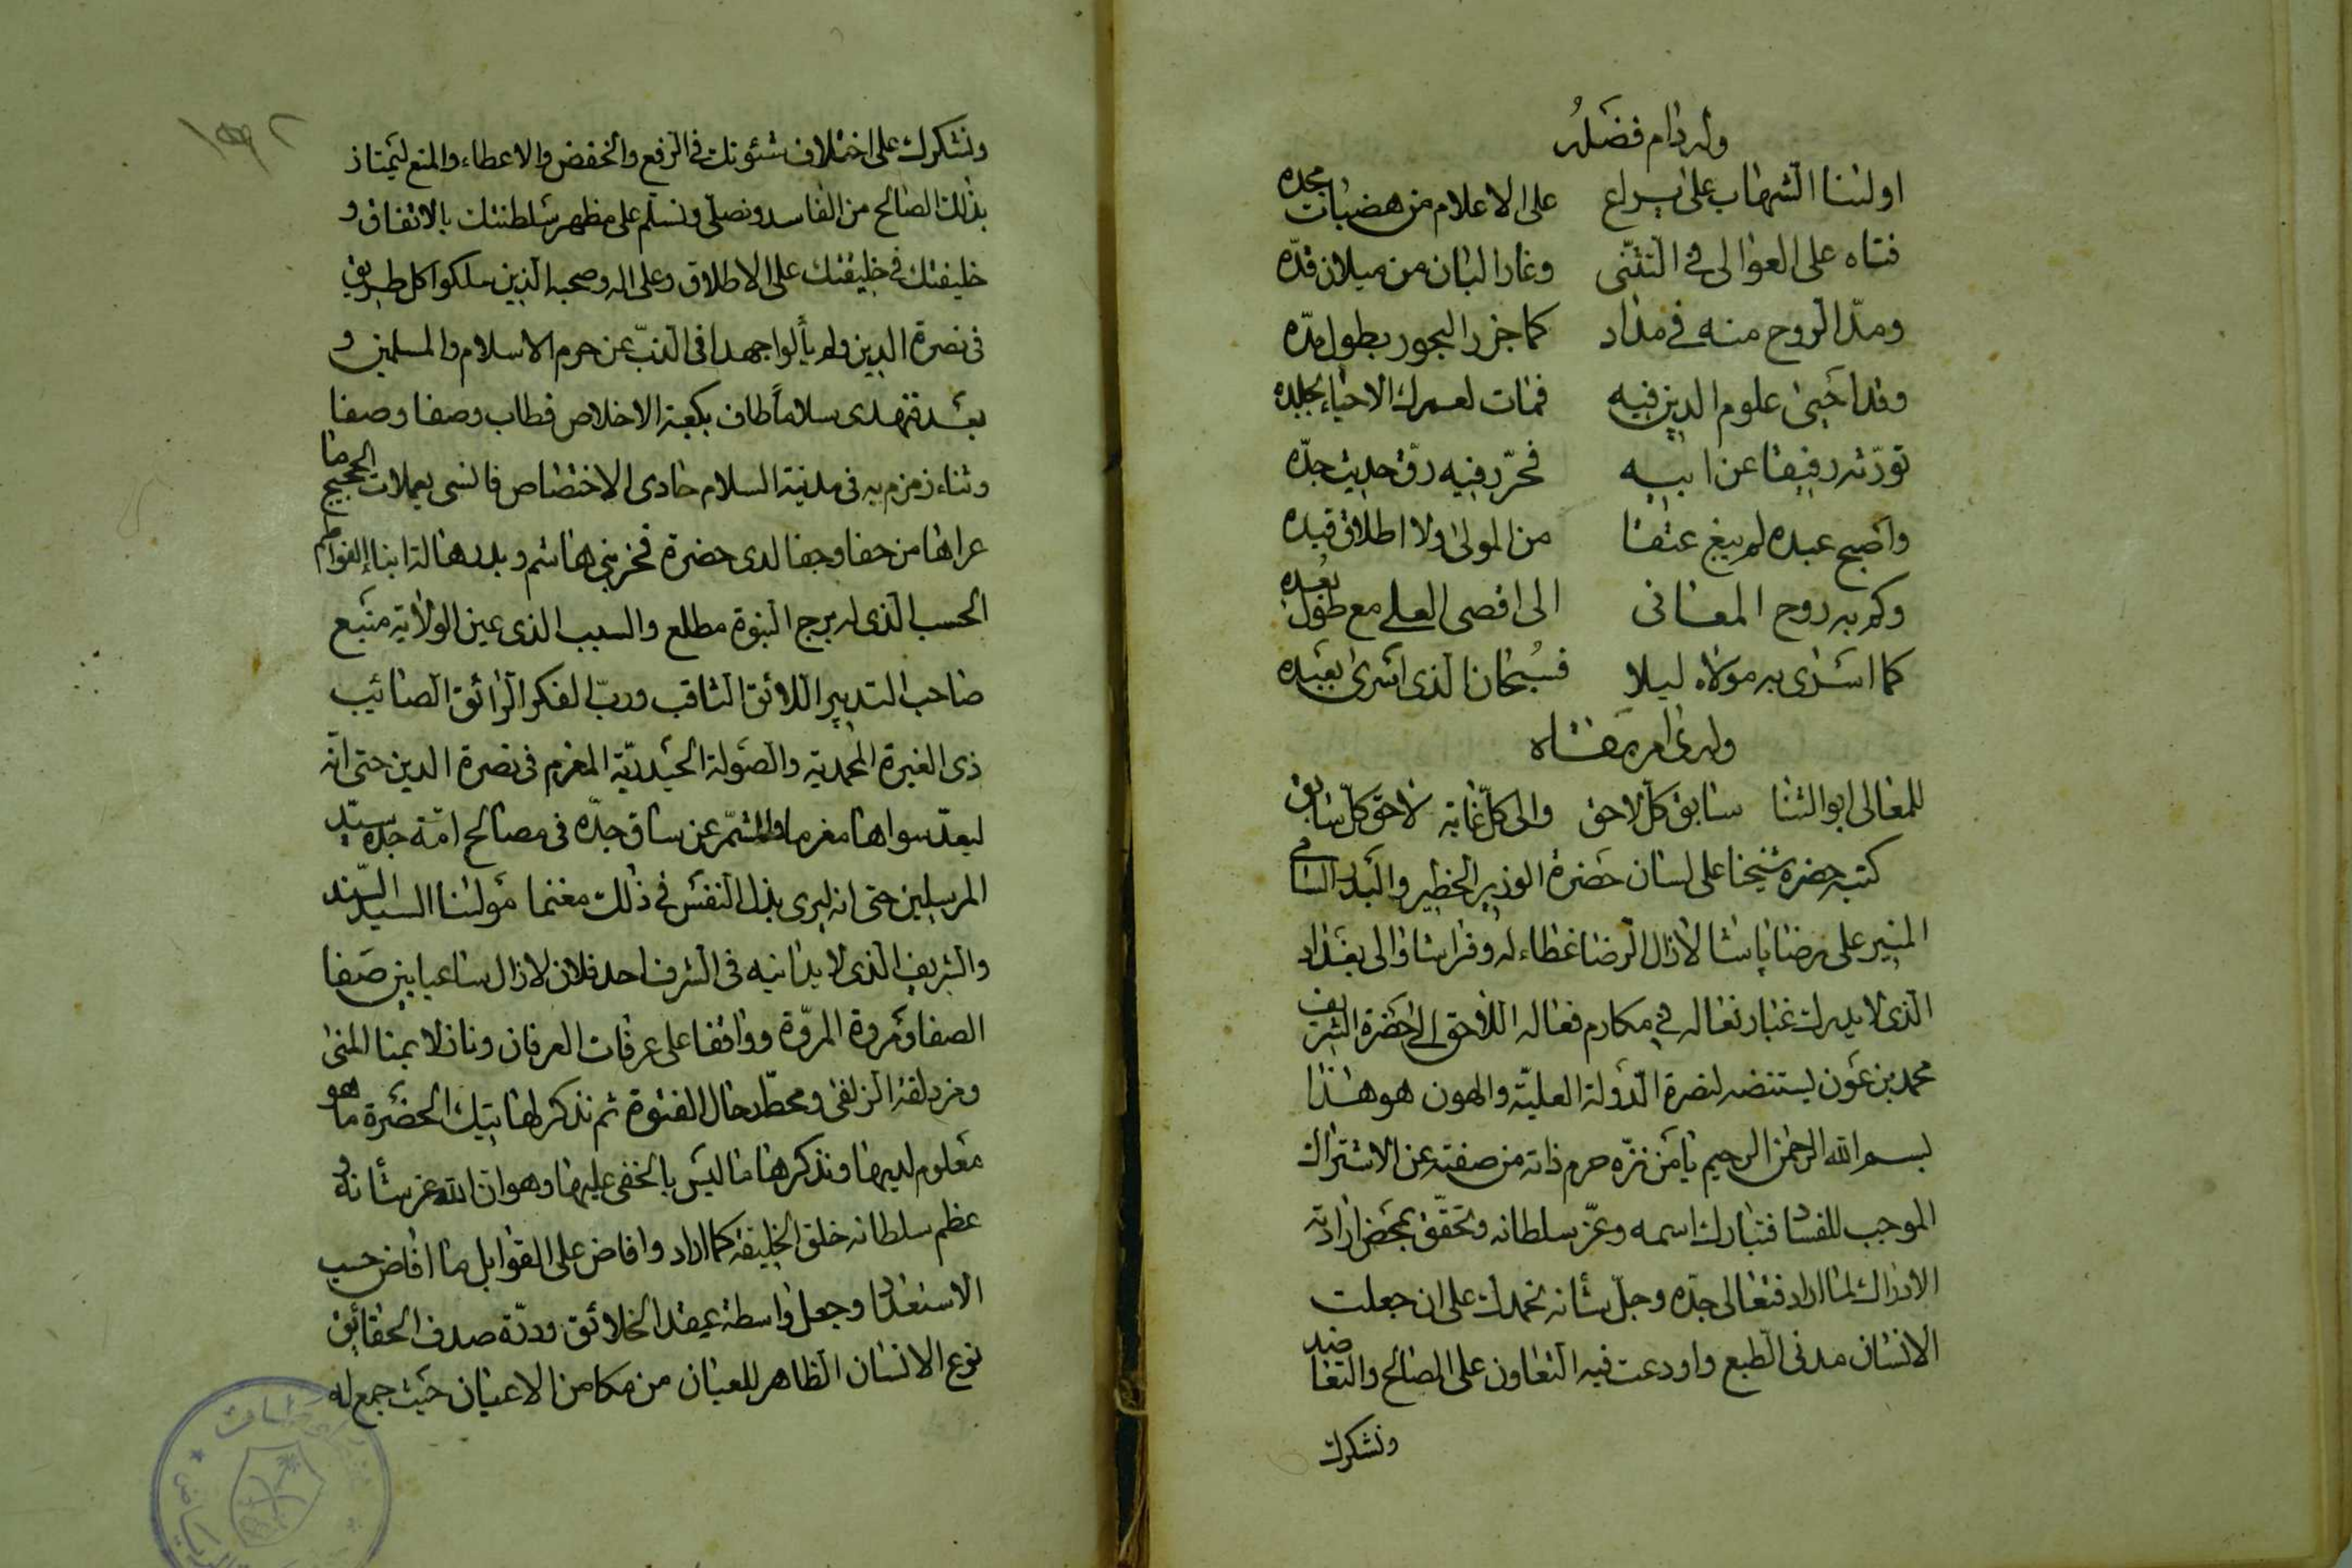 وله دام فضله
اولنا الشهاب على يراع على الاعلام من هضبات مجده
فتاه على العوالى فى التثنّى وغار البان من ميلان قدّه
ومدّ الروح منه فى مداد كما جزر البحور بطول مدّه
وقد احيى علوم الدين فيه فمات لعمرك الاحياء بجلده
تورّثه رقيقا عن ابيه فحرّر فيه رقّ حديث جدّه
واصبح عبده لم يبغ عتقا من المولى ولا اطلاق قيده
وكم به روح المعانى الى اقصى العلى مع طول بُعده
كما اسرى به مولاه ليلا فسُبحان الذى اسرى بعبده
وله رى امر مقناه
للمعالى ابو الثنا سابق كلّ لاحق والى كلّ غاية لاحق كلّ سابق
كتبه حضرة شيخنا على لسان حضرة الوزير الخطير والبدر السامى
المنير على رضا پاشا لازال الرضا غطاء له وفراشا والى بغداد
الذى لا يدرك غبار نعاله فى مكارم فعاله اللاحق الى حضرة الشريف
محمد بن عون يستنضه لنصرة الدولة العليّة والعون هو هذا
بسم الله الرحمن الرحيم يا من نزّه حرم ذاته من صفته عن الاشتراك
الموجب للفساد فتبارك اسمه وعزّ سلطانه وتحقّق بمحض ارادته
الادراك لما اراد فتعالى جدّه وجلّ شأنه نحمدك على ان جعلت
الانسان مدنى الطبع واودعت فيه التعاون على الصالح والتعاضد
ونشكرك
ونشكرك على اختلاف شئونك فى الرفع والخفض والاعطاء والمنع ليمتاز
بذلك الصالح من الفاسد ونصلّى ونسلّم على مظهر سلطنتك بالاتفاق و
خليفتك فى خليقتك على الاطلاق وعلى اله وصحبه الذين سلكوا كل طريق
فى نصرة الدين ولم يألوا جهدا فى الذبّ عن حرم الاسلام والمسلمين و
بعد فنهدى سلاماً طاف بكعبة الاخلاص فطاب وصفا وصفا
وثناء زمزم به فى مدينة السلام حادى الاختصاص فانسى يعملات الحجيج ما
عراها من حفا وجفا لدى حضرة فخر بنى هاشم وبدر هالة ابناء الفواطم
الحسب الذى له برج النبوة مطلع والسبب الذى عين الولاية منبع
صاحب التدبير اللائق الثاقب وربّ الفكر الرائق الصائيب
ذى الغيرة المحمدية والصولة الحيدريّة المغرم فى نصرة الدين حتى انّه
ليعدّ سواها مغرما والمشمّر عن ساق جدّه فى مصالح امّة جدّه سيّد
المرسلين حتى انه ليرى بذل النفس فى ذلك مغنما مولنا السيد السند
والشريف الذى لا يدانيه فى الشرف احد فلان لازال ساعيا بين صفا
الصفا ومروة المروّة وواقفا على عرفات العرفان ونازلا بمنا المنى
ومزدلفة الزلفى ومحطّ رحال الفتوة ثم نذكر لهاتيك الحضرة ما هو
معلوم لديها ونذكرها ما ليس بالخفى عليها وهو ان الله عز شأنه و
عظم سلطانه خلق الخليقة كما اراد وافاض على القوابل ما افاض حسب
الاستعداد وجعل واسطة عقد الخلائق ودرّة صدف الحقائق
نوع الانسان الظاهر للعيان من مكامن الاعيان حيث جمع له